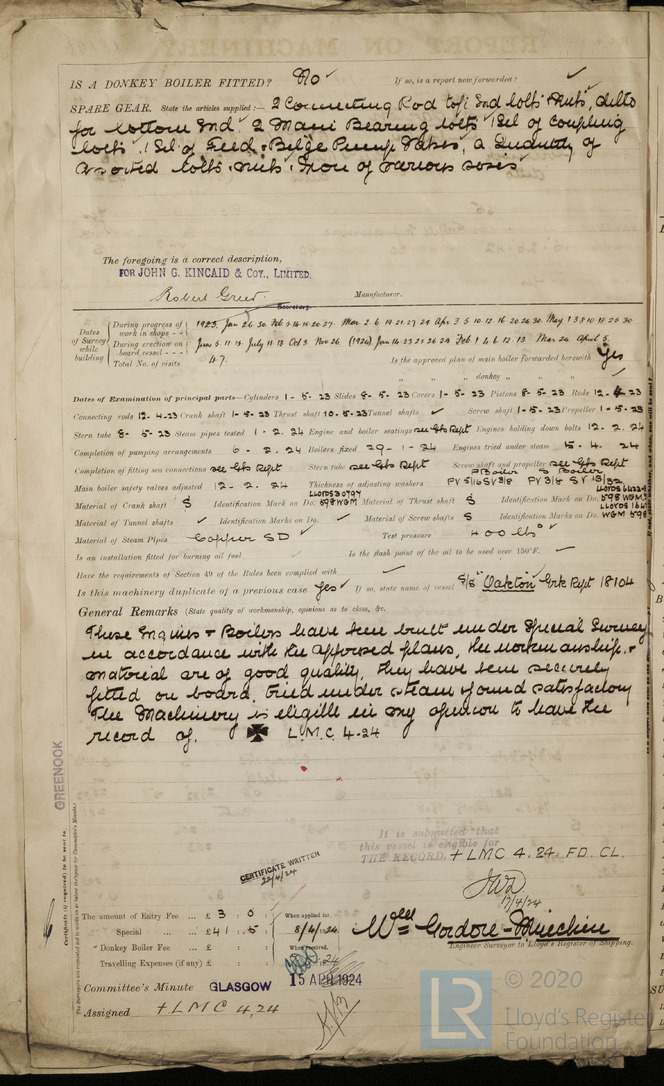 IS A DONKEY BOILER FITTED? No ✓ If so, is a report now forwarded? ✓
SPARE GEAR. State the articles supplied:— 2 Connecting Rod top End bolts & nuts, ditto
for bottom End. 2 Main Bearing bolts 1 Set of Coupling
bolts. 1 Set of Feed & Bilge Pump Valves, a Quantity of
assorted bolts & nuts & Iron of various sizes
The foregoing is a correct description,
FOR JOHN G. KINCAID & COY., LIMITED.
Robert Greer. Manufacturer.
Secretary
Dates of Survey while building
During progress of work in shops - - 1923. Jan 26. 30. Feb 5. 14. 16. 20. 27. Mar 2. 6. 19. 21. 27. 29 Apr 3. 5. 10. 12. 16. 20. 26. 30. May 1 3 8 10 15 25 30
During erection on board vessel - - - June 5. 11. 19. July 11. 13 Oct 3. Nov 26. (1924) Jan 14. 23. 25. 28. 29 Feb 1. 4. 6. 12. 13. Mar 24. April 5.
Total No. of visits 47. Is the approved plan of main boiler forwarded herewith Yes
" " " donkey " "
Dates of Examination of principal parts—Cylinders 1-5-23 Slides 8-5-23 Covers 1-5-23 Pistons 8-5-23 Rods 12-4-23
Connecting rods 12-4-23 Crank shaft 1-5-23 Thrust shaft 10-5-23 Tunnel shafts ✓ Screw shaft 1-5-23 Propeller 1-5-23
Stern tube 8-5-23 Steam pipes tested 1-2-24 Engine and boiler seatings see Gls Rept Engines holding down bolts 12-2-24
Completion of pumping arrangements 6-2-24 Boilers fixed 29-1-24 Engines tried under steam 5-4-24
Completion of fitting sea connections see Gls Rept Stern tube see Gls Rept Screw shaft and propeller see Gls Rept
P Boiler S Boiler
Main boiler safety valves adjusted 12-2-24 Thickness of adjusting washers PV 5/16 SV 3/8 PV 3/8 SV 13/32
Material of Crank shaft S Identification Mark on Do. 598WGM Material of Thrust shaft S Identification Mark on Do. 598 WGM
Material of Tunnel shafts ✓ Identification Marks on Do. ✓ Material of Screw shafts S Identification Marks on Do. WGM 598
Material of Steam Pipes Copper SD ✓ Test pressure 400 lbs ✓
Is an installation fitted for burning oil fuel ✓ Is the flash point of the oil to be used over 150°F. ✓
Have the requirements of Section 49 of the Rules been complied with ✓
Is this machinery duplicate of a previous case Yes ✓ If so, state name of vessel S/S "Oakton" Grk Rept 18104
General Remarks (State quality of workmanship, opinions as to class, &c.
These Engines & Boilers have been built under Special Survey
in accordance with the approved plans, the workmanship &
material are of good quality, they have been securely
fitted on board, tried under steam & found satisfactory
The Machinery is eligible in my opinion to have the
record of. ✠ L.M.C. 4-24
GREENOCK
Certificate (if required) to be sent to
It is submitted that
this vessel is eligible for
THE RECORD. + LMC 4.24. FD. CL.
17/4/24
CERTIFICATE WRITTEN
22/4/24
The amount of Entry Fee ... £ 3 : 0 : When applied for,
Special ... ... £ 41 : 5 : 8/4/24
Donkey Boiler Fee ... £ : : When received,
Travelling Expenses (if any) £ : : 24
Wm Gordon-Muechin
Engineer Surveyor to Lloyd's Register of Shipping.
Committee's Minute GLASGOW 15 APR 1924
Assigned + LMC 4,24
LR
© 2020
Lloyd's Register
Foundation